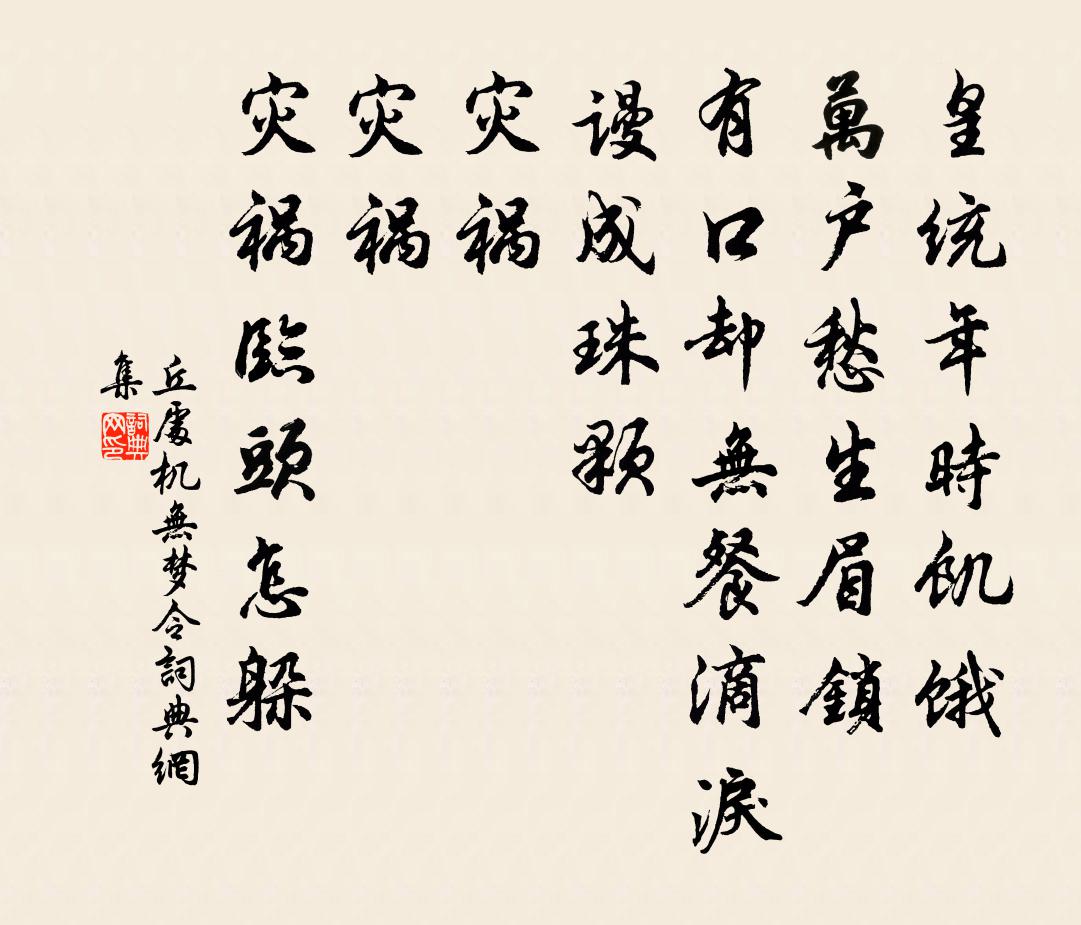 皇统年時飢餓
萬户愁生眉鎖
有口却無餐滴淚
谩成珠顆
灾祸
灾祸
灾祸臨頭怎躲
丘處机無梦令詞典網
集
詞典
网印